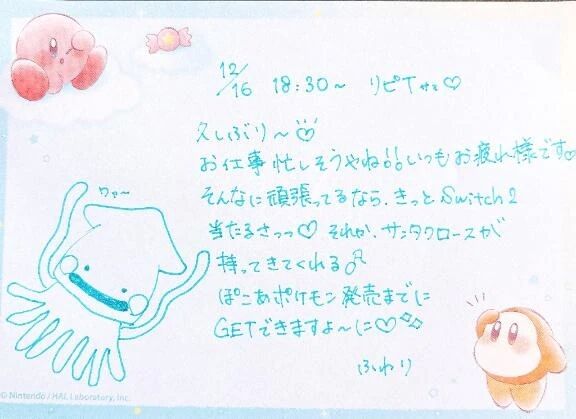 12/16 18:30〜 リピTさま♡
久しぶり〜♡
お仕事忙しそうやね!!いつもお疲れ様です♡
そんなに頑張ってるなら、きっとSwitch2
当たるさっっ♡それか、サンタクロースが
持ってきてくれる
ぽこあポケモン発売までに
GETできますよ〜に♡
ふわり
ワァ〜
© Nintendo / HAL Laboratory, Inc.